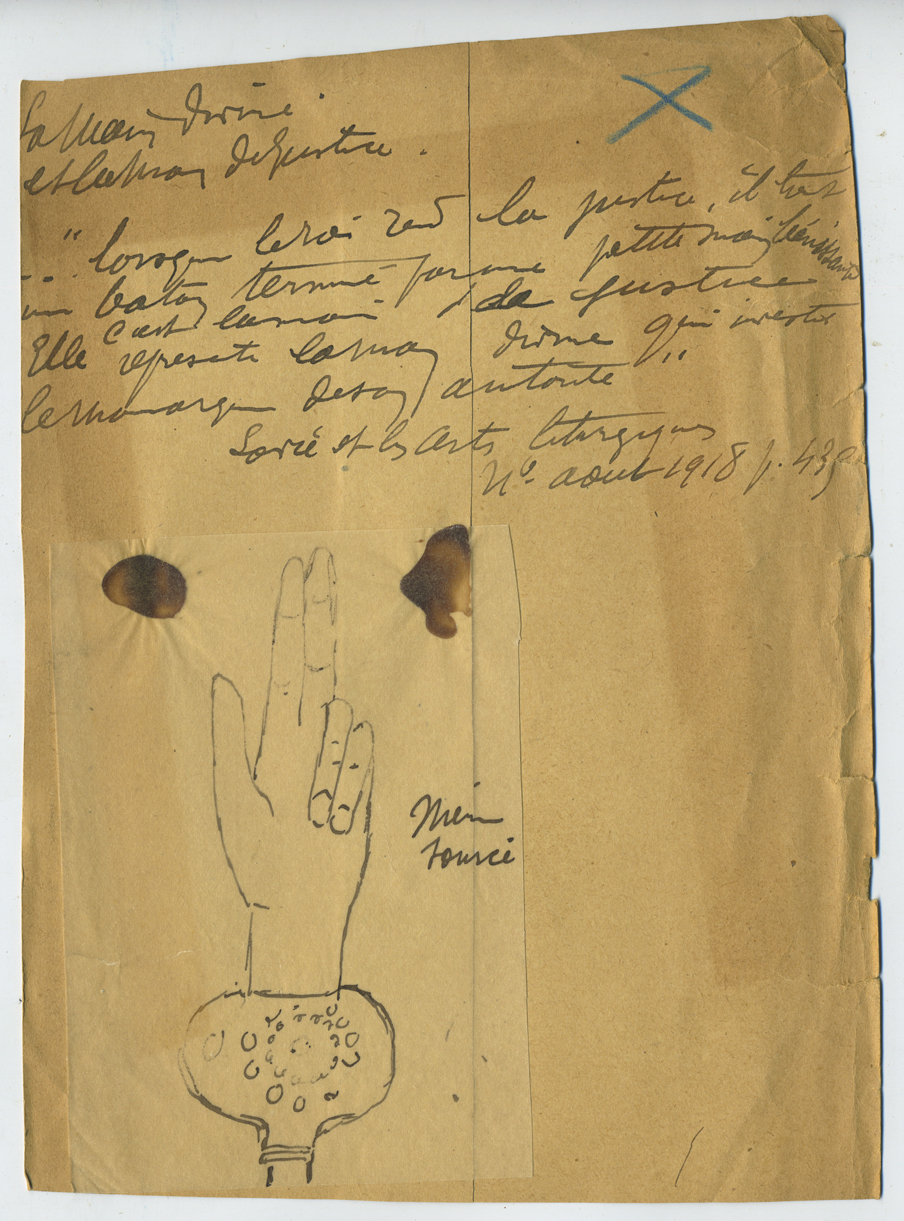 La Main divine.
et la Main de Justice.
.. " lorsque le roi rend la justice, il tient
un baton terminé par une petite main bénissante
c'est la main de Justice
Elle represente la Main divine qui investit
le monarque de son autorité "
et les Arts liturgiques
No. aout 1918 p. 439
Mème
source